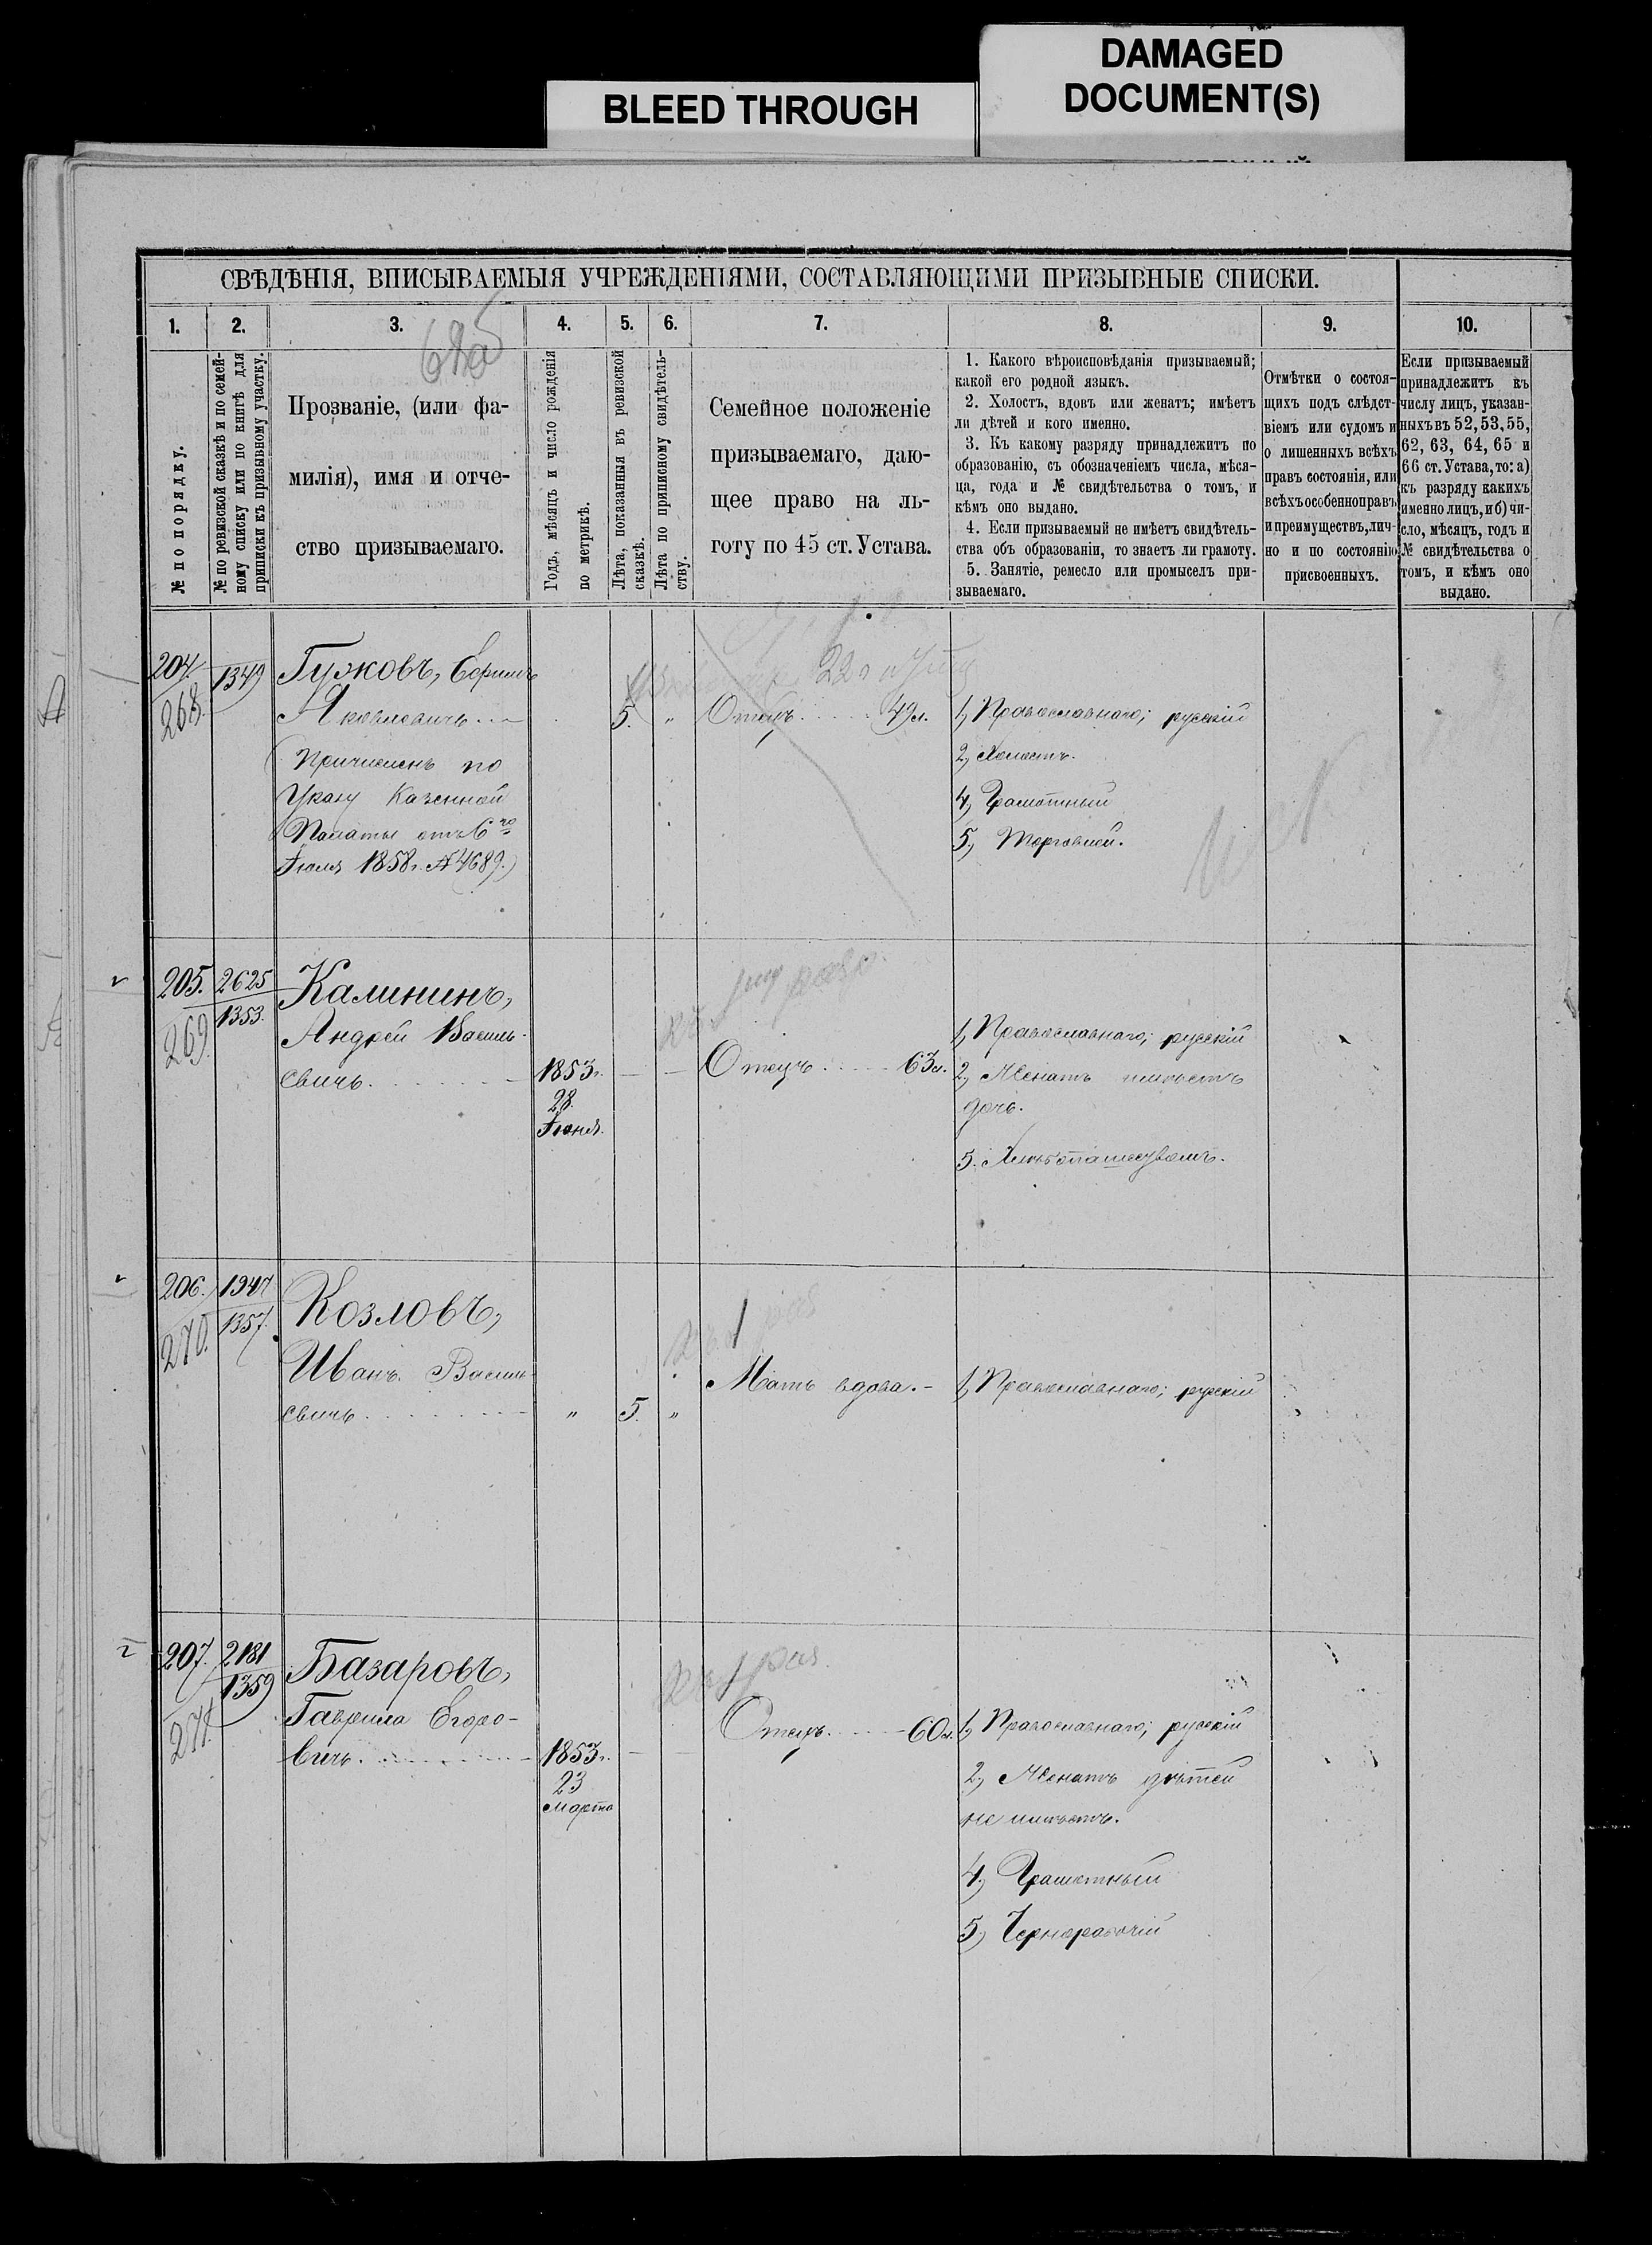 BLEED THROUGH
DAMAGED
DOCUMENT(S)
СВѢДѢНІЯ, ВПИСЫВАЕМЫЯ УЧРЕЖДЕНІЯМИ, СОСТАВЛЯЮЩИМИ ПРИЗЫВНЫЕ СПИСКИ.
1.
2.
3.
4.
5.
6.
7.
8.
9.
10.
№ по порядку.
№ по ревизской сказкѣ и по семей-
ному списку или по книгѣ для
приписки къ призывному участку.
Прозваніе, (или фа-
милія), имя и отче-
ство призываемаго.
Годъ, мѣсяцъ и число рожденія
по метрикѣ.
Лѣта, показанныя въ ревизской
сказкѣ.
Лѣта по приписному свидѣтель-
ству.
Семейное положеніе
призываемаго, даю-
щее право на ль-
готу по 45 ст. Устава.
1. Какого вѣроисповѣданія призываемый;
какой его родной языкъ.
2. Холостъ, вдовъ или женатъ; имѣетъ
ли дѣтей и кого именно.
3. Къ какому разряду принадлежитъ по
образованію, съ обозначеніемъ числа, мѣся-
ца, года и № свидѣтельства о томъ, и
кѣмъ оно выдано.
4. Если призываемый не имѣетъ свидѣтель-
ства объ образованіи, то знаетъ ли грамоту.
5. Занятіе, ремесло или промыселъ при-
зываемаго.
Отмѣтки о состоя-
щихъ подъ слѣдст-
віемъ или судомъ и
о лишенныхъ всѣхъ
правъ состоянія, или
всѣхъ особенно правъ
и преимуществъ, лич-
но и по состоянію
присвоенныхъ.
Если призываемый
принадлежитъ къ
числу лицъ, указан-
ныхъ въ 52, 53, 55,
62, 63, 64, 65 и
66 ст. Устава, то: а)
къ разряду какихъ
именно лицъ, и б) чи-
сло, мѣсяцъ, годъ и
№ свидѣтельства о
томъ, и кѣмъ оно
выдано.
204.
268.
1349
Гужковъ, Ефимъ
Яковлевичъ
(Причисленъ по
Указу Казенной
Палаты отъ 6го
Іюля 1858 г. № 4689.)
5. "
Отецъ 49 л.
1, Православнаго; русскій
2, Холостъ.
4, Грамотный
5, Торговлей.
205.
269.
2625
1353.
Калининъ,
Андрей Василь-
евичъ.
1853 г.
28
Іюня.
Отецъ 63 л.
1, Православнаго; русскій
2, Женатъ имѣетъ
дочь.
5. Хлѣбопашествомъ.
206.
270.
1947
1357.
Козловъ,
Иванъ Василь-
евичъ
" 5. "
Мать вдова.
1, Православнаго; русскій
207.
271.
2181
1359
Базаровъ,
Гаврила Егоро-
вичъ.
1853 г.
23
Марта
Отецъ 60 л.
1, Православнаго; русскій
2, Женатъ дѣтей
не имѣетъ.
4, Грамотный
5, Чернорабочій